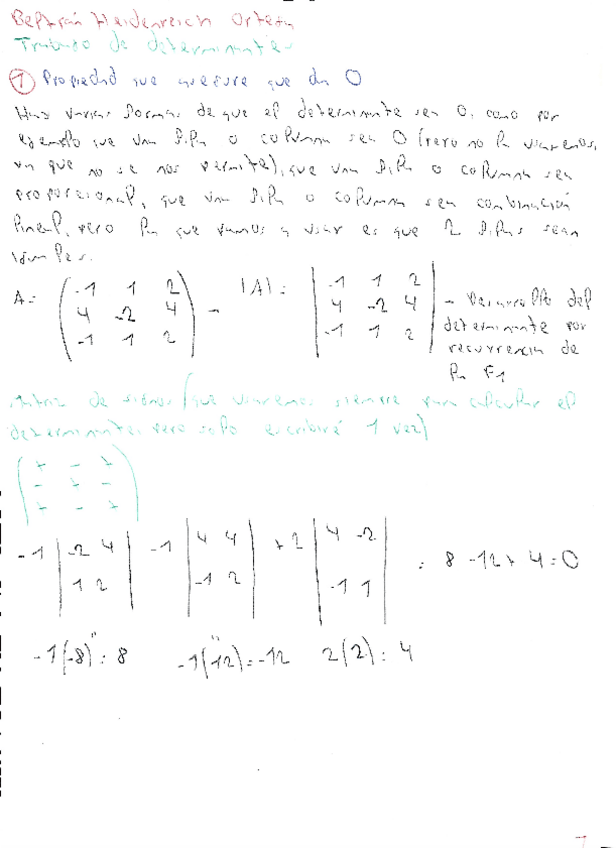 Beltrán Heidenreich Ortega
Trabajo de determinantes
① Propiedad que asegure que da 0
Hay varias formas de que el determinante sea 0, como por
ejemplo que una fila o columna sea 0 (pero no la usaremos,
ya que no se nos permite), que una fila o columna sea
proporcional, que una fila o columna sea combinación
lineal, pero la que vamos a usar es que 2 filas sean
iguales.
A= ( -1 1 2 → |A|= | -1 1 2 | → Desarrollo del
4 -2 4 4 -2 4 determinante por
-1 1 2 ) -1 1 2 recurrencia de
la F1
Matriz de signos (que usaremos siempre para calcular el
determinante, pero solo escribiré 1 vez)
( + - +
- + -
+ - + )
-1 | -2 4 | -1 | 4 4 | +2 | 4 -2 | = 8 -12 + 4 = 0
1 2 -1 2 -1 1
-1(-8) = 8 -1(12) = -12 2(2) = 4
1